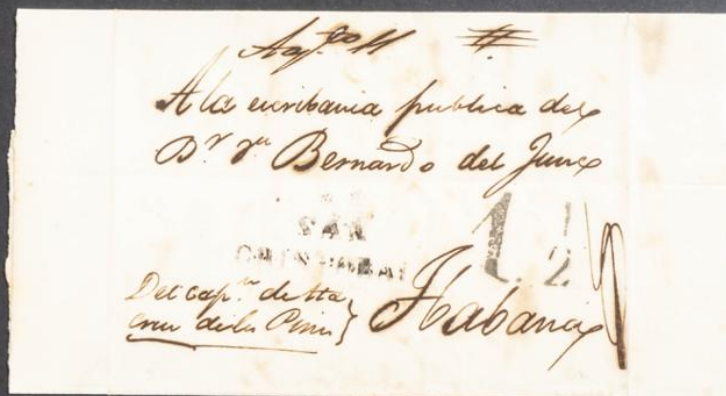 Agto 11 #
A la escribania publica del
Dr Dn Bernardo del Junco
SAN
CRISTOBAL
1 1/2
Del capn de Sta
Cruz de los Pinos } Habana